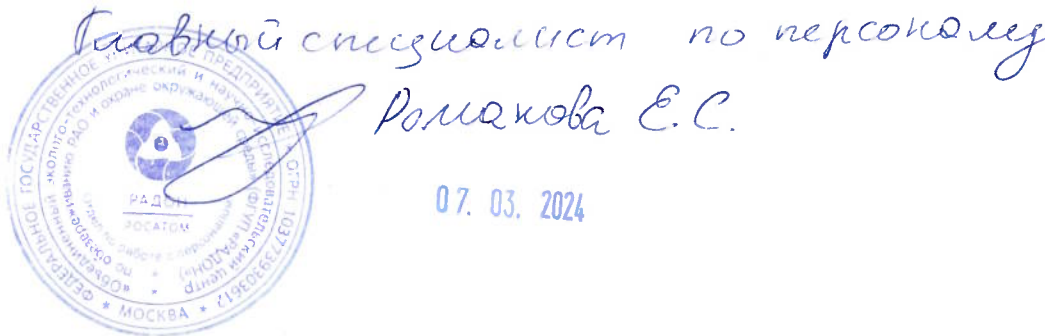 Главный специалист по персоналу
Романова Е.С.
07. 03. 2024
ФЕДЕРАЛЬНОЕ ГОСУДАРСТВЕННОЕ ПРЕДПРИЯТИЕ * ОГРН 1037739303612 * МОСКВА *
«Объединенный эколого-технологический и научно-исследовательский центр
по обезвреживанию РАО и охране окружающей среды» (ФГУП «РАДОН»)
РАДОН
РОСАТОМ